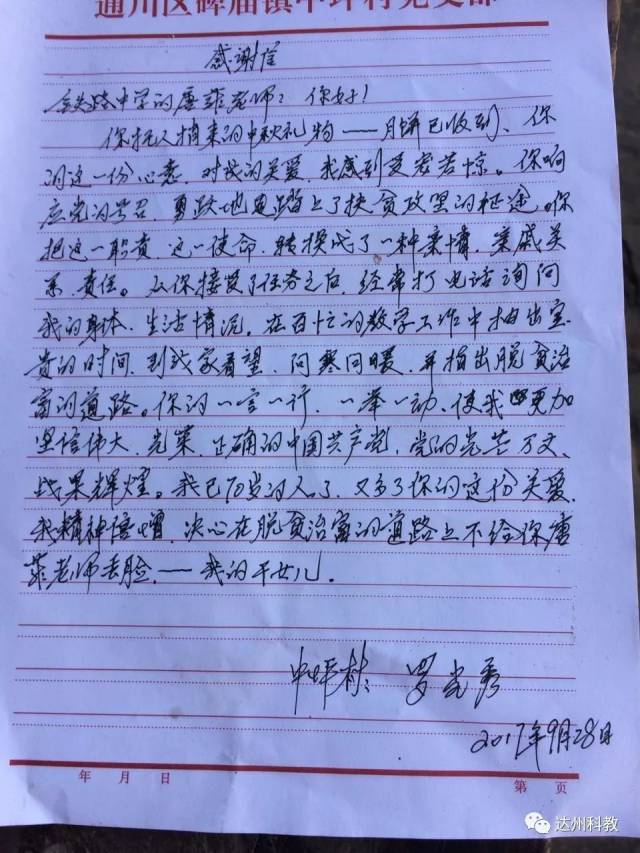 通川区碑庙镇中坪村党支部
感谢信
铁路中学的唐菲老师：你好！
你托人捎来的中秋礼物——月饼已收到、你
的这一份心意，对我的关爱，我感到受宠若惊。你响
应党的号召，勇跃地踏上了扶贫攻坚的征途。你
把这一职责，这一使命，转换成了一种亲情，亲戚关
系，责任。从你接受了任务之后，经常打电话询问
我的身体、生活情况，在百忙的教学工作中抽出宝
贵的时间，到我家看望，问寒问暖，并指出脱贫治
富的道路。你的一言一行，一举一动，使我更加
坚信伟大、光荣、正确的中国共产党，党的光芒万丈，
战果辉煌。我已70岁的人了，又多了你的这份关爱，
我精神倍增，决心在脱贫治富的道路上不给你唐
菲老师丢脸，——我的干女儿。
中坪村：罗光秀
2017年9月28日
年 月 日
第 页
达州科教